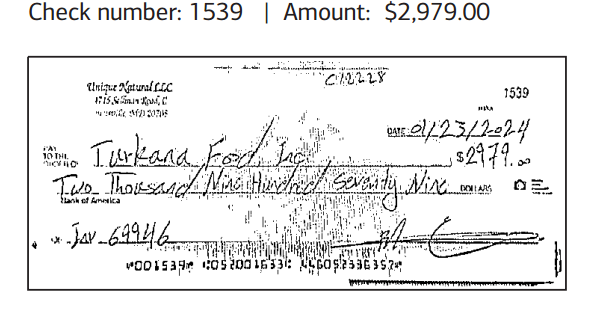 Check number: 1539 | Amount: $2,979.00
C12228
Unique Natural LLC
4715 Sellman Road,
MD 20705
1539
DATE 01/23/2024
PAY TO THE
Turkana Food, Inc.
$2979.00
Two Thousand Nine Hundred Seventy Nine DOLLARS
Bank of America
Inv-69946